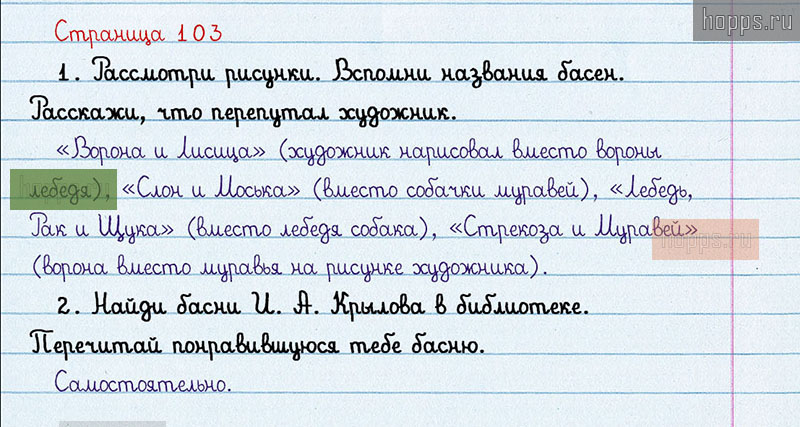 hopps.ru
Страница 103
1. Рассмотри рисунки. Вспомни названия басен.
Расскажи, что перепутал художник.
«Ворона и Лисица» (художник нарисовал вместо вороны
лебедя), «Слон и Моська» (вместо собачки муравей), «Лебедь,
Рак и Щука» (вместо лебедя собака), «Стрекоза и Муравей»
hopps.ru
(ворона вместо муравья на рисунке художника).
2. Найди басни И. А. Крылова в библиотеке.
Перечитай понравившуюся тебе басню.
Самостоятельно.